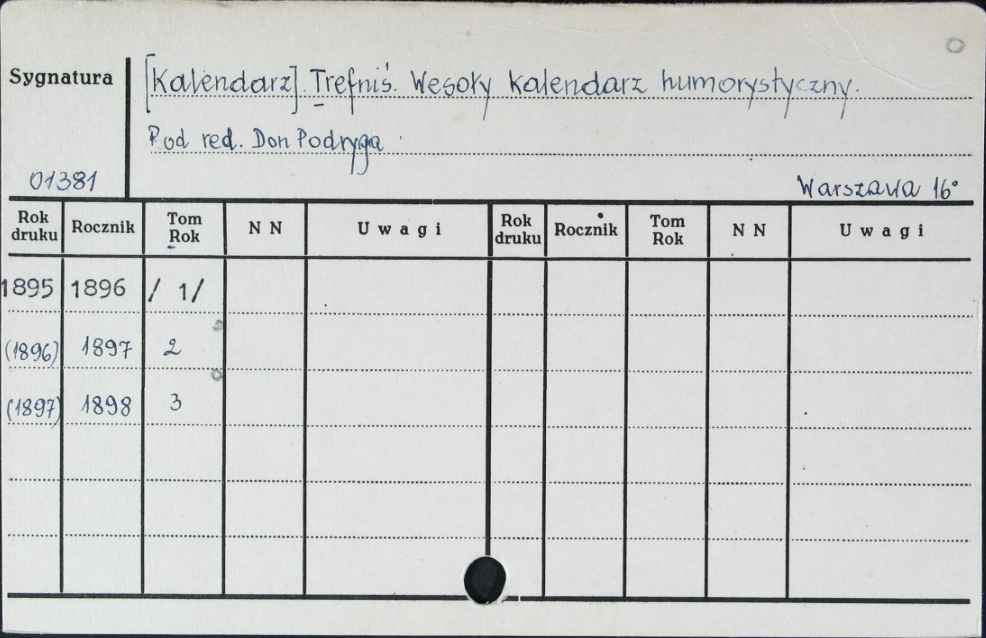 Sygnatura
[Kalendarz]. Trefniś. Wesoły kalendarz humorystyczny.
Pod red. Don Podryga
01381
Warszawa 16°
Rok druku Rocznik Tom Rok N N Uwagi Rok druku Rocznik Tom Rok N N Uwagi
1895 1896 / 1/
(1896) 1897 2
(1897) 1898 3